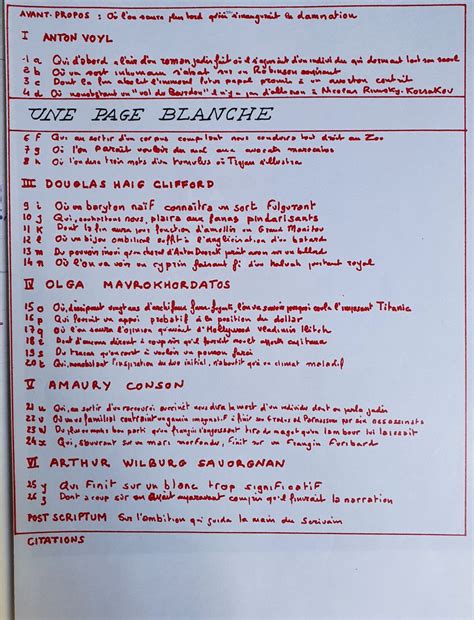 AVANT-PROPOS : Où l'on saura plus tard qu'ici s'inaugurait la damnation
I ANTON VOYL
1 a Qui d'abord a l'air d'un roman jadis fait où il s'agissait d'un individu qui dormait tout son saoul
2 b Où un sort inhumain s'abat sur un Robinson
3 c Dont la fin abolit l'immoral futur papal promis à un avorton contrit
4 d Où nonobstant un "vol du Bourdon" il n'y a pas d'allusion à Nicolas Rimsky-Korsakov
UNE PAGE BLANCHE
6 f Qui au sortir d'un corpus compilant nous conduira tout droit au Zoo
7 g Où l'on PARAÎT vouloir du mal aux avocats marocains
8 h Où l'on dira trois mots d'un tumulus où Trajan s'illustra
III DOUGLAS HAIG CLIFFORD
9 i Où un baryton naïf connaîtra un sort fulgurant
10 j Qui, souhaitons nous, plaira aux fanas pindarisants
11 k Dont la fin aura pour fonction d'amollir un Grand Manitou
12 l Où un bijou ombilical suffit à l'anglicisation d'un batard
13 m Du pouvoir inouï qu'un choral d'Anton Dvorak paraît avoir sur un billard
14 n Où l'on va voir un cyprin faisant fi d'un halvah pourtant royal
IV OLGA MAVROKHORDATOS
15 o Où, dissipant vingt ans d'archifaux faux-fuyants, l'on va savoir pourquoi coula l'imposant Titanic
16 p Qui fournit un appui probatif à la position du dollar
17 q Où l'on saura l'opinion qu'avait d'Hollywood Vladimir Ilitch
18 r Dont d'aucuns diront à coup sûr qu'il fournit moult apports
19 s Du tracas qu'on court à vouloir un poisson farci
20 t Qui, nonobstant l'inspiration du dix initial, n'aboutit qu'à un climat maladif
V AMAURY CONSON
21 u Qui, au sortir d'un raccourci narratif nous dira la mort d'un individu dont on parla jadis
22 v Où un us familial contraint un gamin imaginatif à finir son Gradus ad Parnassum par six assassinats
23 w Du plus ou moins bon parti qu'un frangin s'angoissant tira du magot qu'un tambour lui laissait
24 x Qui, s'ouvrant sur un mari morfondu, finit sur un Frangin Furibard
VI ARTHUR WILBURG SAVORGNAN
25 y Qui finit sur un blanc trop significatif
26 z Dont à coup sûr on avait auparavant compris qu'il finirait la narration
POST SCRIPTUM Sur l'ambition qui guida la main du scrivain
CITATIONS